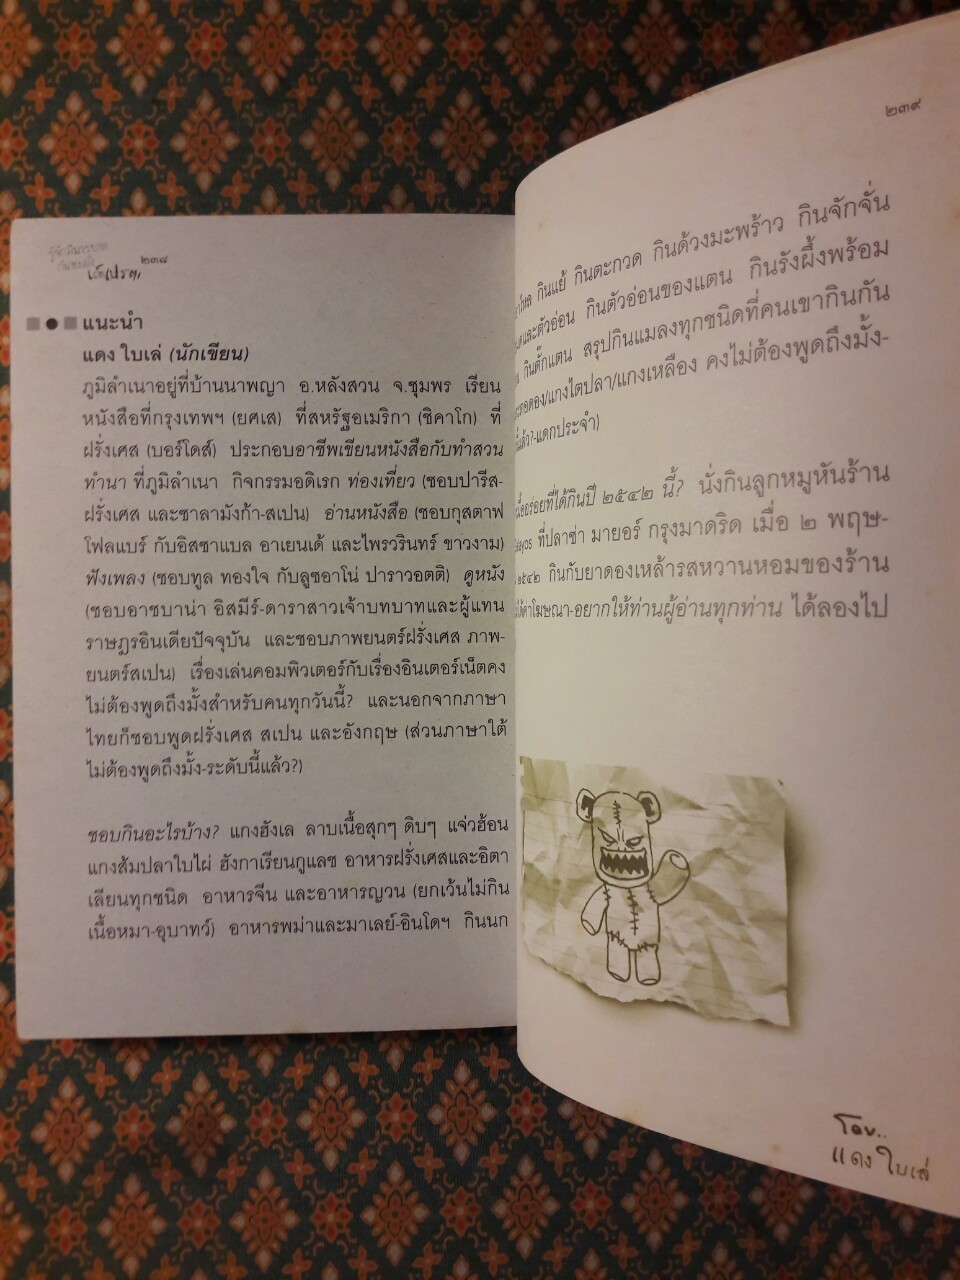 ๒๓๘
แนะนำ
แดง ใบเล่ (นักเขียน)
ภูมิลำเนาอยู่ที่บ้านนาพญา อ.หลังสวน จ.ชุมพร เรียน
หนังสือที่กรุงเทพฯ (ยศเส) ที่สหรัฐอเมริกา (ชิคาโก) ที่
ฝรั่งเศส (บอร์โดส์) ประกอบอาชีพเขียนหนังสือกับทำสวน
ทำนา ที่ภูมิลำเนา กิจกรรมอดิเรก ท่องเที่ยว (ชอบปารีส-
ฝรั่งเศส และซาลามังก้า-สเปน) อ่านหนังสือ (ชอบกุสตาฟ
โฟลแบร์ กับอิสซาแบล อาเยนเด้ และไพรวรินทร์ ขาวงาม)
ฟังเพลง (ชอบทูล ทองใจ กับลูซอาโน่ ปาราวอตติ) ดูหนัง
(ชอบอาชบาน่า อิสมีร์-ดาราสาวเจ้าบทบาทและผู้แทน
ราษฎรอินเดียปัจจุบัน และชอบภาพยนตร์ฝรั่งเศส ภาพ-
ยนตร์สเปน) เรื่องเล่นคอมพิวเตอร์กับเรื่องอินเตอร์เน็ตคง
ไม่ต้องพูดถึงมั้งสำหรับคนทุกวันนี้? และนอกจากภาษา
ไทยก็ชอบพูดฝรั่งเศส สเปน และอังกฤษ (ส่วนภาษาใต้
ไม่ต้องพูดถึงมั้ง-ระดับนี้แล้ว?)
ชอบกินอะไรบ้าง? แกงฮังเล ลาบเนื้อสุกๆ ดิบๆ แจ่วฮ้อน
แกงส้มปลาใบไผ่ ฮังกาเรียนกูแลช อาหารฝรั่งเศสและอิตา
เลียนทุกชนิด อาหารจีน และอาหารญวน (ยกเว้นไม่กิน
เนื้อหมา-อุบาทว์) อาหารพม่าและมาเลย์-อินโดฯ กินนก
๒๓๙
กินแย้ กินตะกวด กินด้วงมะพร้าว กินจักจั่น
และตัวอ่อน กินตัวอ่อนของแตน กินรังผึ้งพร้อม
กินตั๊กแตน สรุปกินแมลงทุกชนิดที่คนเขากินกัน
แกงไตปลา/แกงเหลือง คงไม่ต้องพูดถึงมั้ง-
นี้แล้ว?-แดกประจำ)
อร่อยที่ได้กินปี ๒๕๔๒ นี้? นั่งกินลูกหมูหันร้าน
ที่ปลาซ่า มายอร์ กรุงมาดริด เมื่อ ๒ พฤษ-
๒๕๔๒ กินกับยาดองเหล้ารสหวานหอมของร้าน
ค่าโฆษณา-อยากให้ท่านผู้อ่านทุกท่าน ได้ลองไป
โดย..
แดง ใบเล่